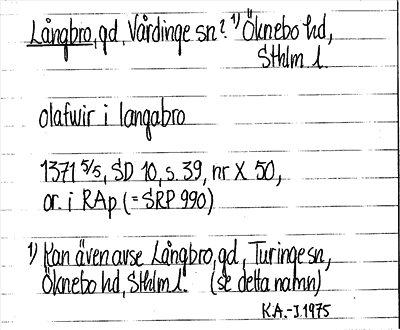 Långbro, gd, Vårdinge sn? 1) Öknebo hd,
Sthlm l.
olafwir i langabro
1371 5/5, SD 10, s. 39, nr X 50,
or. i RAp (= SRP 990)
1) Kan även avse Långbro, gd, Turinge sn,
Öknebo hd, Sthlm l. (se detta namn)
K.A.-J. 1975